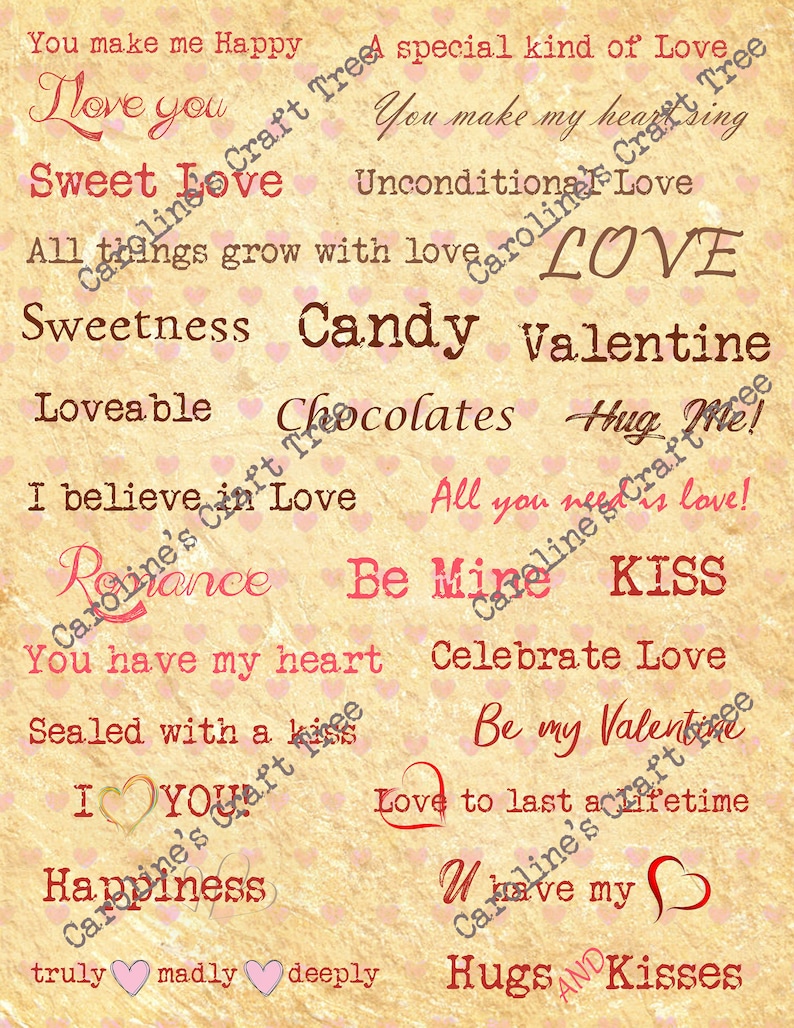 You make me Happy
A special kind of Love
I love you
You make my heart sing
Sweet Love
Unconditional Love
All things grow with love
LOVE
Sweetness
Candy
Valentine
Loveable
Chocolates
Hug Me!
I believe in Love
All you need is love!
Romance
Be Mine
KISS
You have my heart
Celebrate Love
Sealed with a kiss
Be my Valentine
I YOU!
Love to last a lifetime
Happiness
U have my
truly madly deeply
Hugs AND Kisses
Caroline's Craft Tree
Caroline's Craft Tree
Caroline's Craft Tree
Caroline's Craft Tree
Caroline's Craft Tree
Caroline's Craft Tree